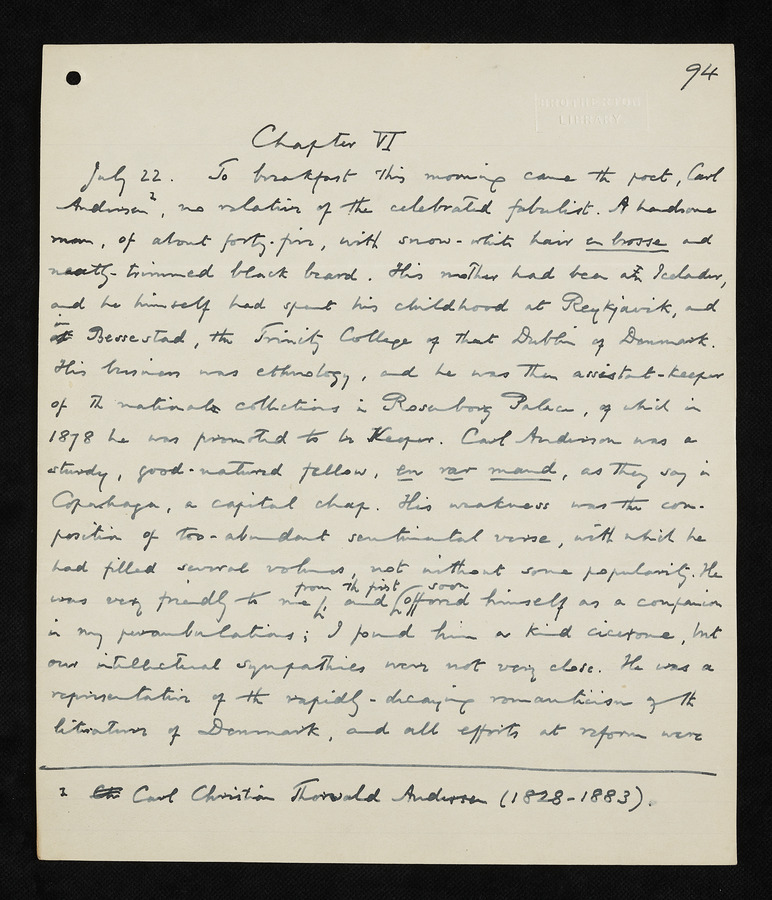 94
BROTHERTON
LIBRARY
Chapter VI
July 22. To breakfast this morning came the poet, Carl
Andersen², no relative of the celebrated fabulist. A handsome
man, of about forty-five, with snow-white hair en brosse and
neatly-trimmed black beard. His mother had been an Icelander,
and he himself had spent his childhood at Reykjavik, and
in Bessestad, the Trinity College of that Dublin of Denmark.
His business was ethnology, and he was then assistant-keeper
of the national collections in Rosenborg Palace, of which in
1878 he was promoted to be Keeper. Carl Andersen was a
sturdy, good-natured fellow, en rar mand, as they say in
Copenhagen, a capital chap. His weakness was the com-
position of too-abundant sentimental verse, with which he
had filled several volumes, not without some popularity. He
was very friendly to me from the first, and soon offered himself as a companion
in my perambulations; I found him a kind cicerone, but
our intellectual sympathies were not very close. He was a
representative of the rapidly-decaying romanticism of the
literature of Denmark, and all efforts at reform were
2 Carl Christian Thorvald Andersen (1828-1883).